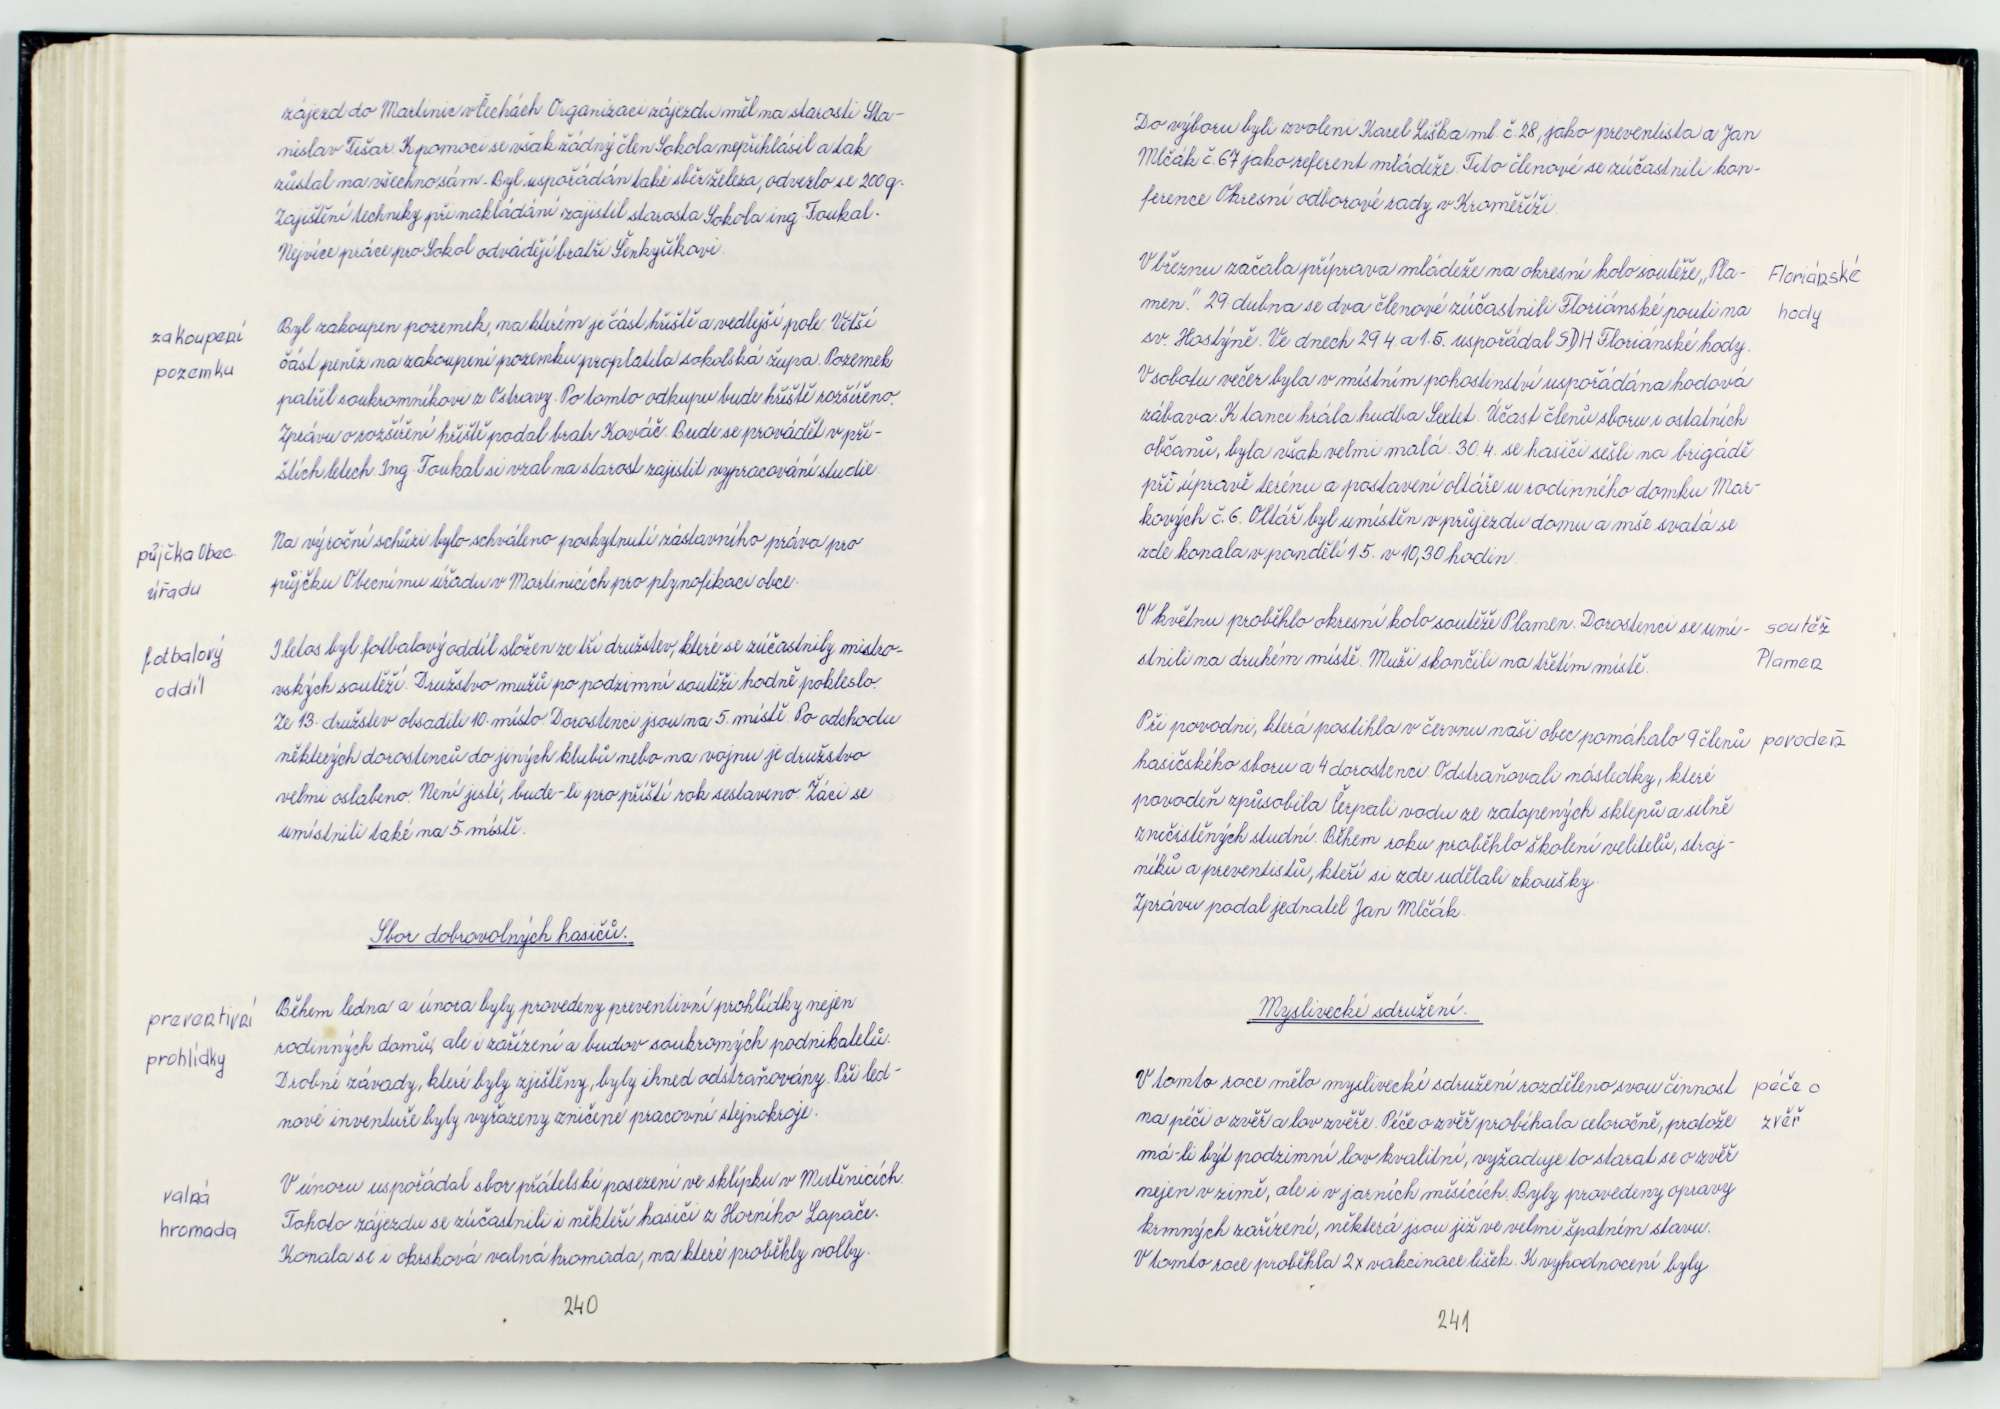 zájezd do Martinic v Čechách. Organizaci zájezdu měl na starosti Sta-
nislav Tišar. K pomoci se však žádný člen Sokola nepřihlásil a tak
zůstal na všechno sám. Byl uspořádán také sběr železa, odvezlo se 200 q.
Zajištění techniky při nakládání zajistil starosta Sokola ing. Toukal.
Nejvíce práce pro Sokol odvádějí bratři Šenkyříkovi.
zakoupení
pozemku
Byl zakoupen pozemek, na kterém je část hřiště a vedlejší pole. Větší
část peněz na zakoupení pozemku proplatila sokolská župa. Pozemek
patřil soukromníkovi z Ostravy. Po tomto odkupu bude hřiště rozšířeno.
Zprávu o rozšíření hřiště podal bratr Kováč. Bude se provádět v pří-
štích letech. Ing. Toukal si vzal na starost zajistit vypracování studie.
půjčka Obec.
úřadu
Na výroční schůzi bylo schváleno poskytnutí zástavního práva pro
půjčku Obecnímu úřadu v Martinicích pro plynofikaci obce.
fotbalový
oddíl
I letos byl fotbalový oddíl složen ze tří družstev, které se zúčastnily mistro-
vských soutěží. Družstvo mužů po podzimní soutěži hodně pokleslo.
Ze 13. družstev obsadili 10. místo. Dorostenci jsou na 5. místě. Po odchodu
některých dorostenců do jených klubů nebo na vojnu je družstvo
velmi oslabeno. Není jisté, bude-li pro příští rok sestaveno. Žáci se
umístnili také na 5. místě.
Sbor dobrovolných hasičů.
preventivní
prohlídky
Během ledna a února byly provedeny preventivní prohlídky nejen
rodinných domů, ale i zařízení a budov soukromých podnikatelů.
Drobné závady, které byly zjištěny, byly ihned odstraňovány. Při led-
nové inventuře byly vyřazeny zničené pracovní stejnokroje.
valná
hromada
V únoru uspořádal sbor přátelské posezení ve sklípku v Mutěnicích.
Tohoto zájezdu se zúčastnili i někteří hasiči z Horního Lapače.
Konala se i okrsková valná hromada, na které proběhly volby.
240
Do výboru byli zvoleni Karel Liška ml. č. 28, jako preventista a Jan
Mlčák č. 67 jako referent mládeže. Tito členové se zúčastnili kon-
ference Okresní odborové rady v Kroměříži.
V březnu začala příprava mládeže na okresní kolo soutěže „Pla-
men." 29. dubna se dva členové zúčastnili Floriánské pouti na
sv. Hostýně. Ve dnech 29.4 a 1.5. uspořádal SDH Floriánské hody.
V sobotu večer byla v místním pohostinství uspořádána hodová
zábava. K tanci hrála hudba Sextet. Účast členů sboru i ostatních
občanů, byla však velmi malá. 30.4. se hasiči sešli na brigádě
při úpravě terénu a postavení oltáře u rodinného domku Mar-
kových č. 6. Oltář byl umístěn v průjezdu domu a mše svatá se
zde konala v pondělí 1.5. v 10,30 hodin.
Floriánské
hody
V květnu proběhlo okresní kolo soutěže Plamen. Dorostenci se umí-
stnili na druhém místě. Muži skončili na třetím místě.
soutěž
Plamen
Při povodni, která postihla v červnu naši obec pomáhalo 9 členů
hasičského sboru a 4 dorostenci. Odstraňovali následky, které
povodeň způsobila. Čerpali vodu ze zatopených sklepů a silně
zničistěných studní. Během roku proběhlo školení velitelů, stroj-
níků a preventistů, kteří si zde udělali zkoušky.
Zprávu podal jednatel Jan Mlčák.
povodeň
Myslivecké sdružení.
V tomto roce mělo myslivecké sdružení rozděleno svou činnost
na péči o zvěř a lov zvěře. Péče o zvěř probíhala celoročně, protože
má-li být podzimní lov kvalitní, vyžaduje to starat se o zvěř
nejen v zimě, ale i v jarních měsících. Byly provedeny opravy
krmných zařízení, některá jsou již ve velmi špatném stavu.
V tomto roce proběhla 2x vakcinace lišek. K vyhodnocení byly
péče o
zvěř
241